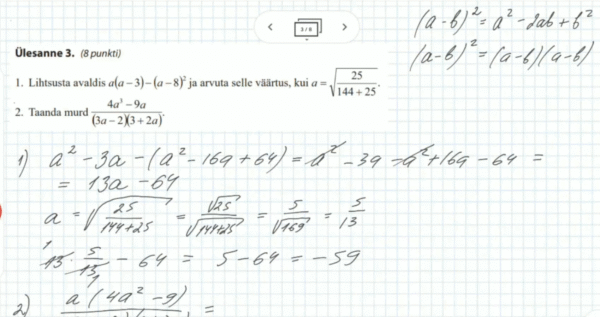 3 / 8
(a-b)² = a² - 2ab + b²
(a-b)² = (a-b)(a-b)
Ülesanne 3. (8 punkti)
1. Lihtsusta avaldis a(a−3)−(a−8)² ja arvuta selle väärtus, kui a = √(25/(144+25)).
2. Taanda murd (4a³−9a)/((3a−2)(3+2a)).
1) a² - 3a - (a² - 16a + 64) = a² - 3a - a² + 16a - 64 =
= 13a - 64
a = √(25/(144+25)) = √25/√(144+25) = 5/√169 = 5/13
13 · 5/13 - 64 = 5 - 64 = -59
2) a(4a² - 9) =